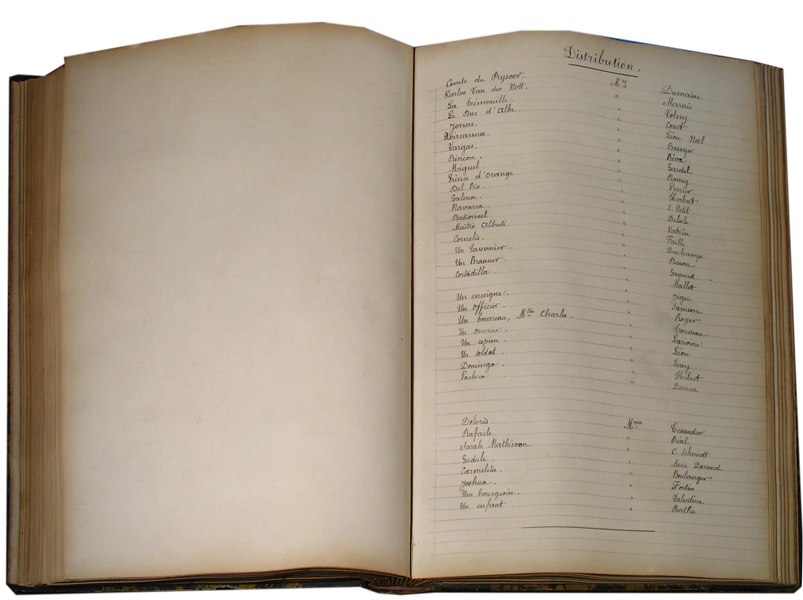 Distribution.
Comte de Rysoor. Mrs Dumaine
Karloo Van der Noot. " Marais
La Trémouille. " Volny
Le Duc d'Albe " Couet
Jonas. " Léon Noël
Noircarmes. " Bouyer
Vargas. " Riva
Rincon. " Gardel
Miguel. " Romy
Prince d'Orange " Perrier
Del Rio. " Herbert
Galena. " E. Petit
Navarra. " Delisle
Bakerzeel " Vatrin
Maître Alberti. " Faille
Cornélis. " Deschamps
Un Tavernier. " Besson
Un Brasseur. " Gaspard
Cortadilla. " Mallet
Un enseigne.
Un Officier. " Samson
Un bourreau, Mtre Charles. " Royer
Un ouvrier.
Un espion.
Un soldat. " Léon
Domingo. " Leroy
Pacheco " Hébert
Dolorès. Mmes
Rafaële. "
Sarah Mathisoon " C. Schmidt
Gudule. " Marie Durand
Carmelita. " Boulanger
Joshua. " Fortin
Une bourgeoise. " Valentine
Un enfant. " Berthe